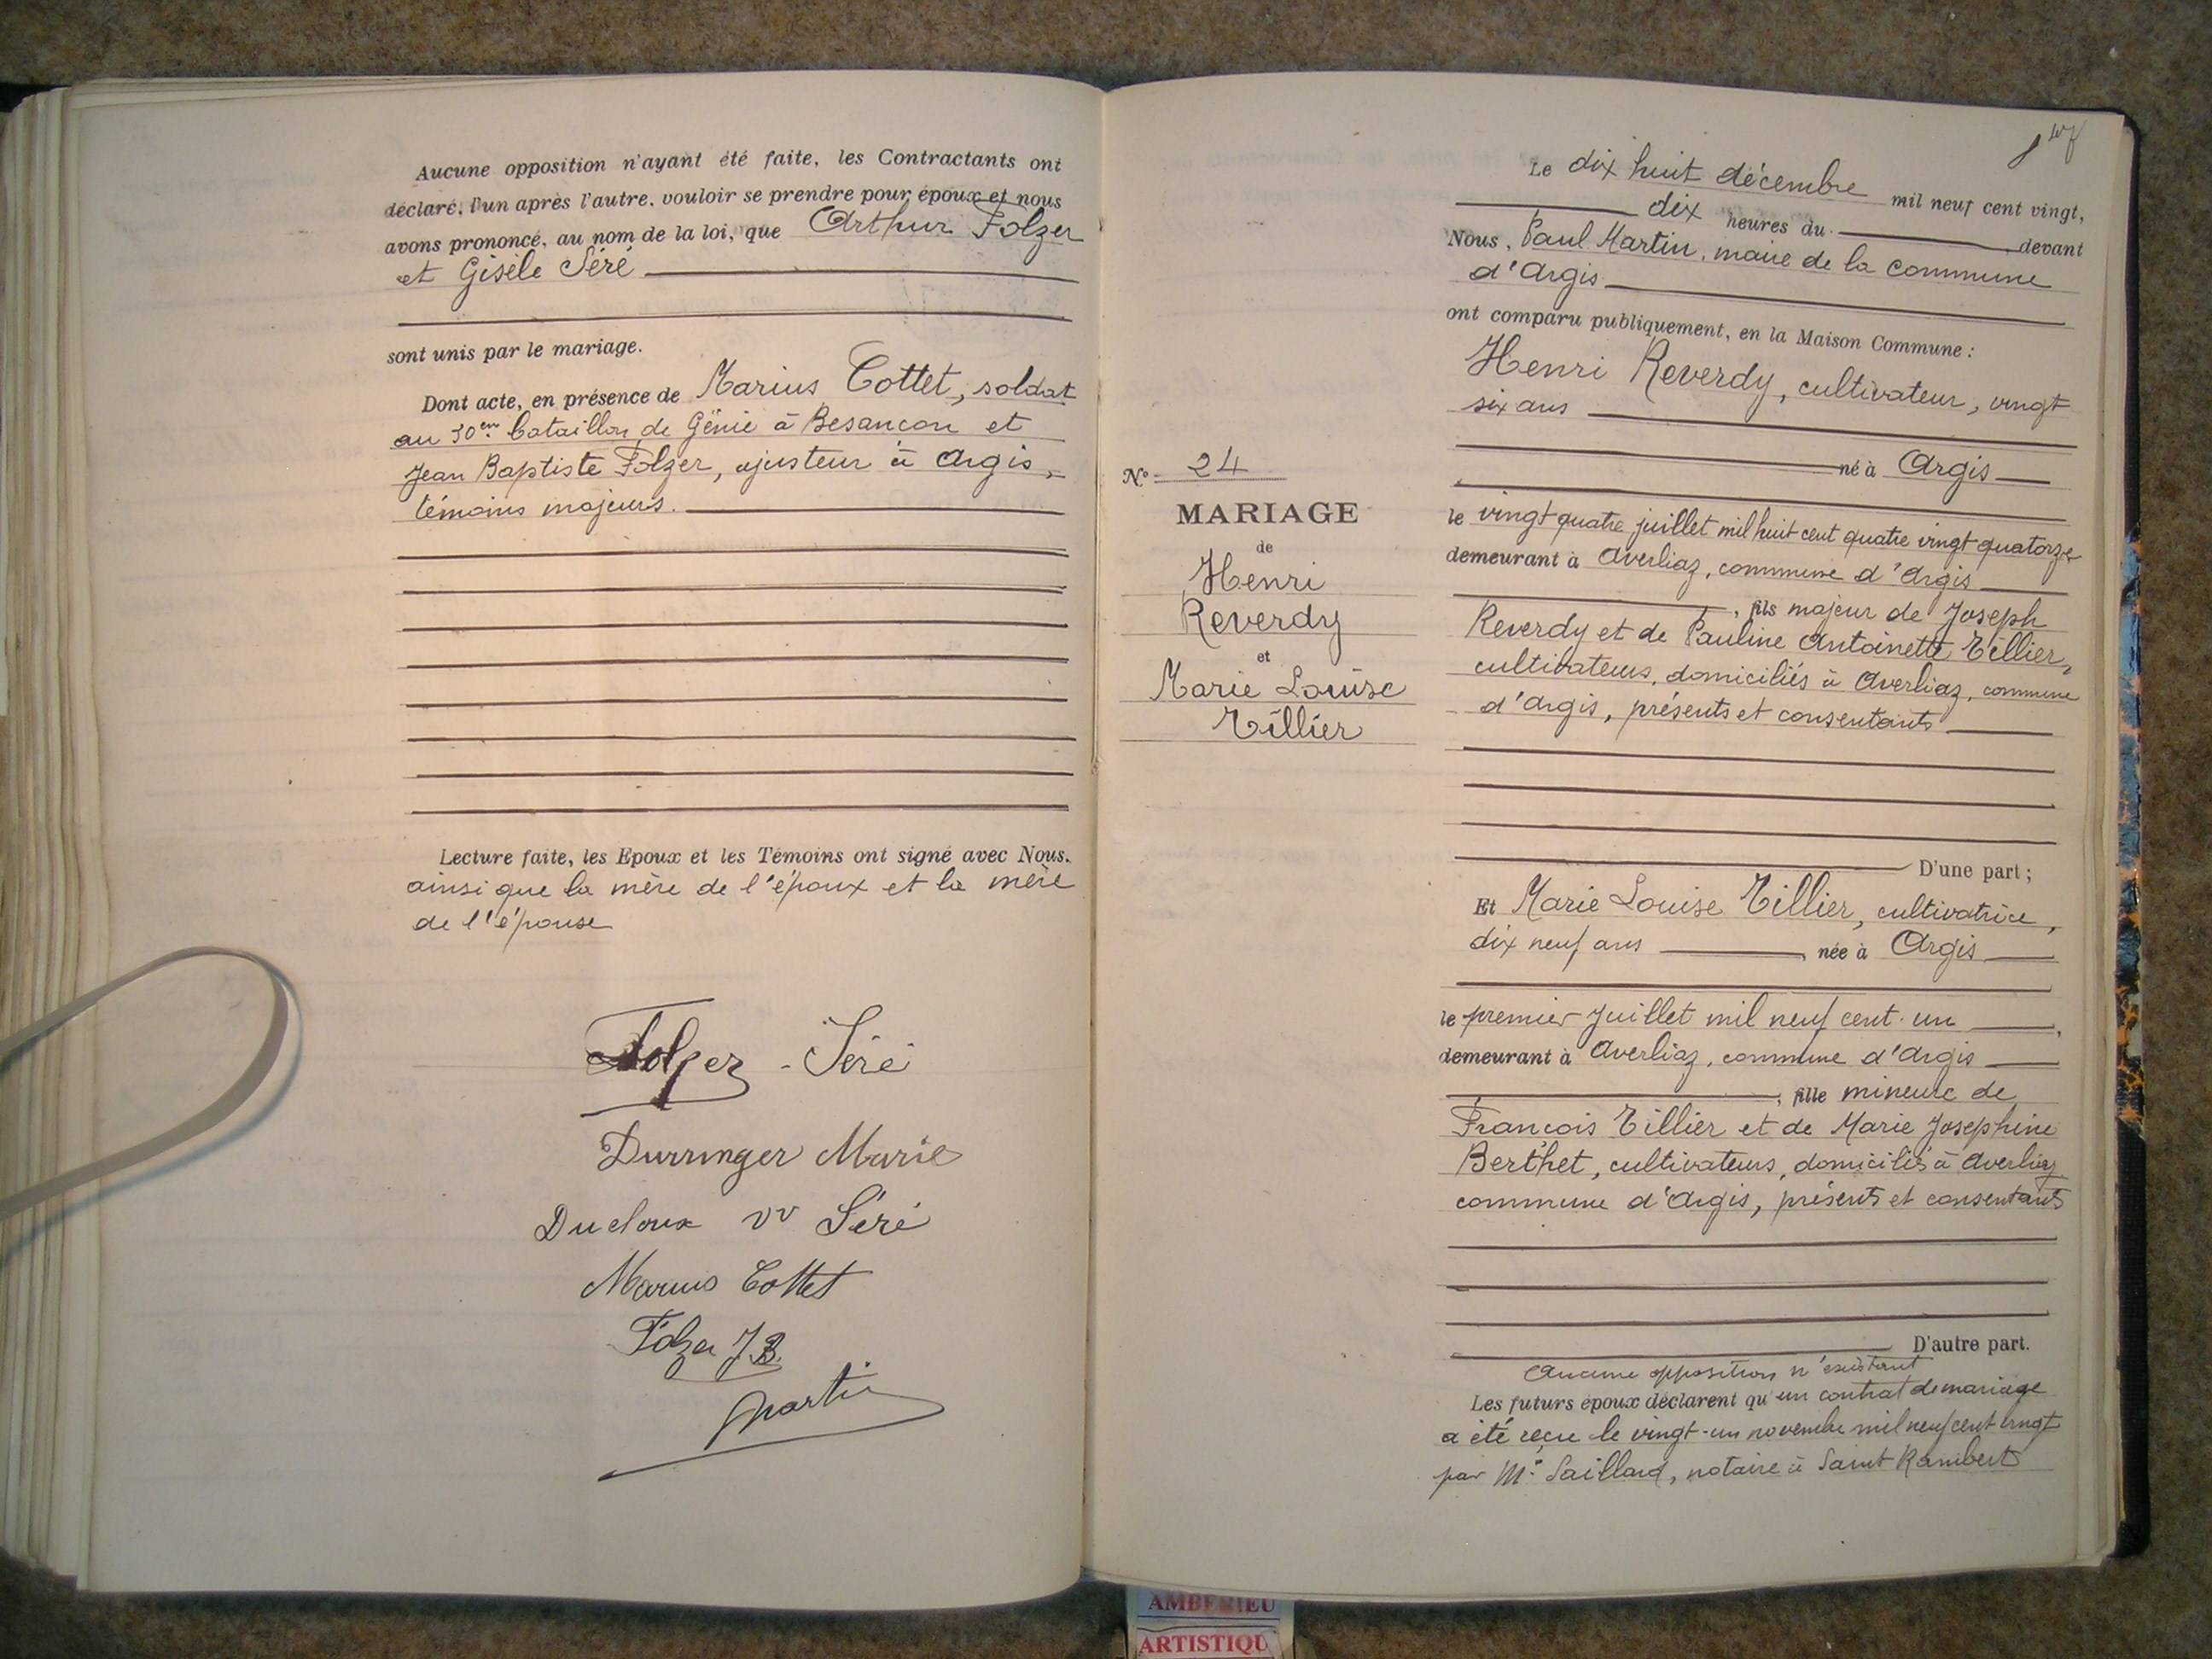 Aucune opposition n'ayant été faite, les Contractants ont
déclaré, l'un après l'autre, vouloir se prendre pour époux et nous
avons prononcé, au nom de la loi, que Arthur Folzer
et Gisèle Séré
sont unis par le mariage.
Dont acte, en présence de Marius Cottet, soldat
au 30em bataillon de Génie à Besançon et
Jean Baptiste Folzer, ajusteur à Argis,
témoins majeurs.
Lecture faite, les Epoux et les Témoins ont signé avec Nous.
ainsi que la mère de l'époux et la mère
de l'épouse
Folzer - Séré
Durringer Marie
Ducloux vv Séré
Marius Cottet
Folzer J B.
Martin
N° 24
MARIAGE
de
Henri
Reverdy
et
Marie Louise
Tillier
Le dix huit décembre mil neuf cent vingt,
dix heures du devant
Nous, Paul Martin, maire de la commune
d'Argis
ont comparu publiquement, en la Maison Commune :
Henri Reverdy, cultivateur, vingt
six ans
né à Argis
le vingt quatre juillet mil huit cent quatre vingt quatorze
demeurant à Averliaz, commune d'Argis
, fils majeur de Joseph
Reverdy et de Pauline Antoinette Tillier,
cultivateurs, domiciliés à Averliaz, commune
d'Argis, présents et consentants
D'une part ;
Et Marie Louise Tillier, cultivatrice,
dix neuf ans , née à Argis
le premier Juillet mil neuf cent un ,
demeurant à Averliaz, commune d'Argis
; fille mineure de
François Tillier et de Marie Josephine
Berthet, cultivateurs, domiciliés à Averliaz
commune d'Argis, présents et consentants
D'autre part.
Aucune opposition n'existant
Les futurs époux déclarent qu'un contrat de mariage
a été reçu le vingt-un novembre mil neuf cent vingt
par Me Saillard, notaire à Saint Rambert
AMBERIEU
ARTISTIQU